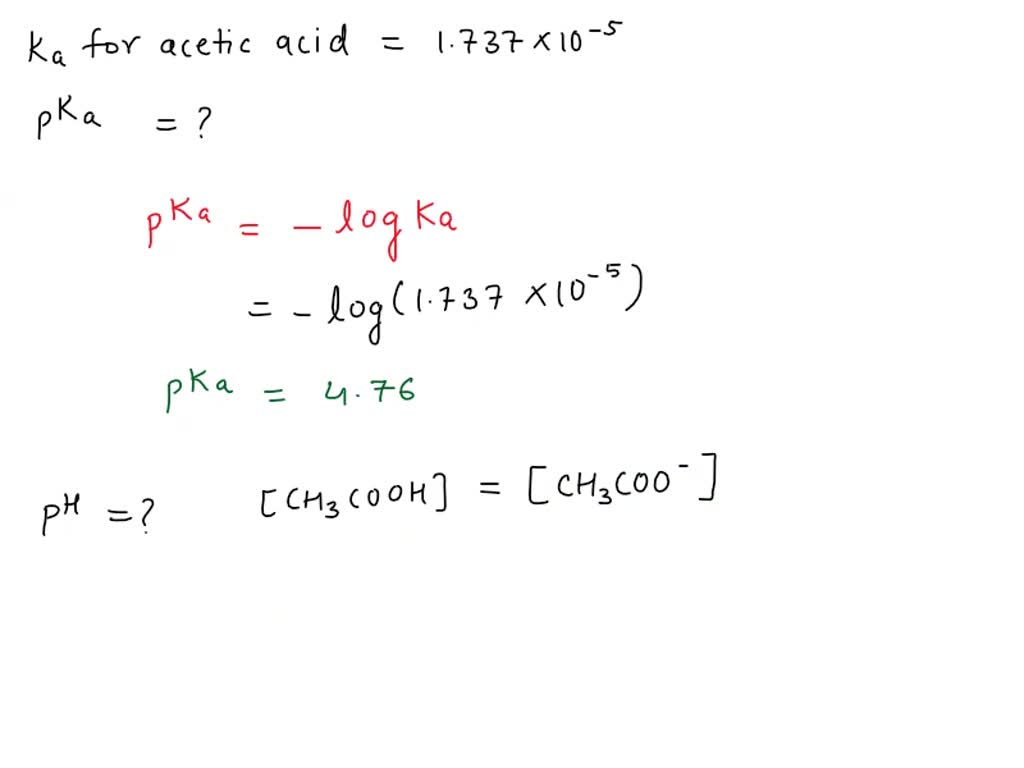 Ka for acetic acid = 1.737 × 10⁻⁵
pKa = ?
pKa = – log Ka
= – log (1.737 × 10⁻⁵)
pKa = 4.76
pH = ? [CH₃COOH] = [CH₃COO⁻]